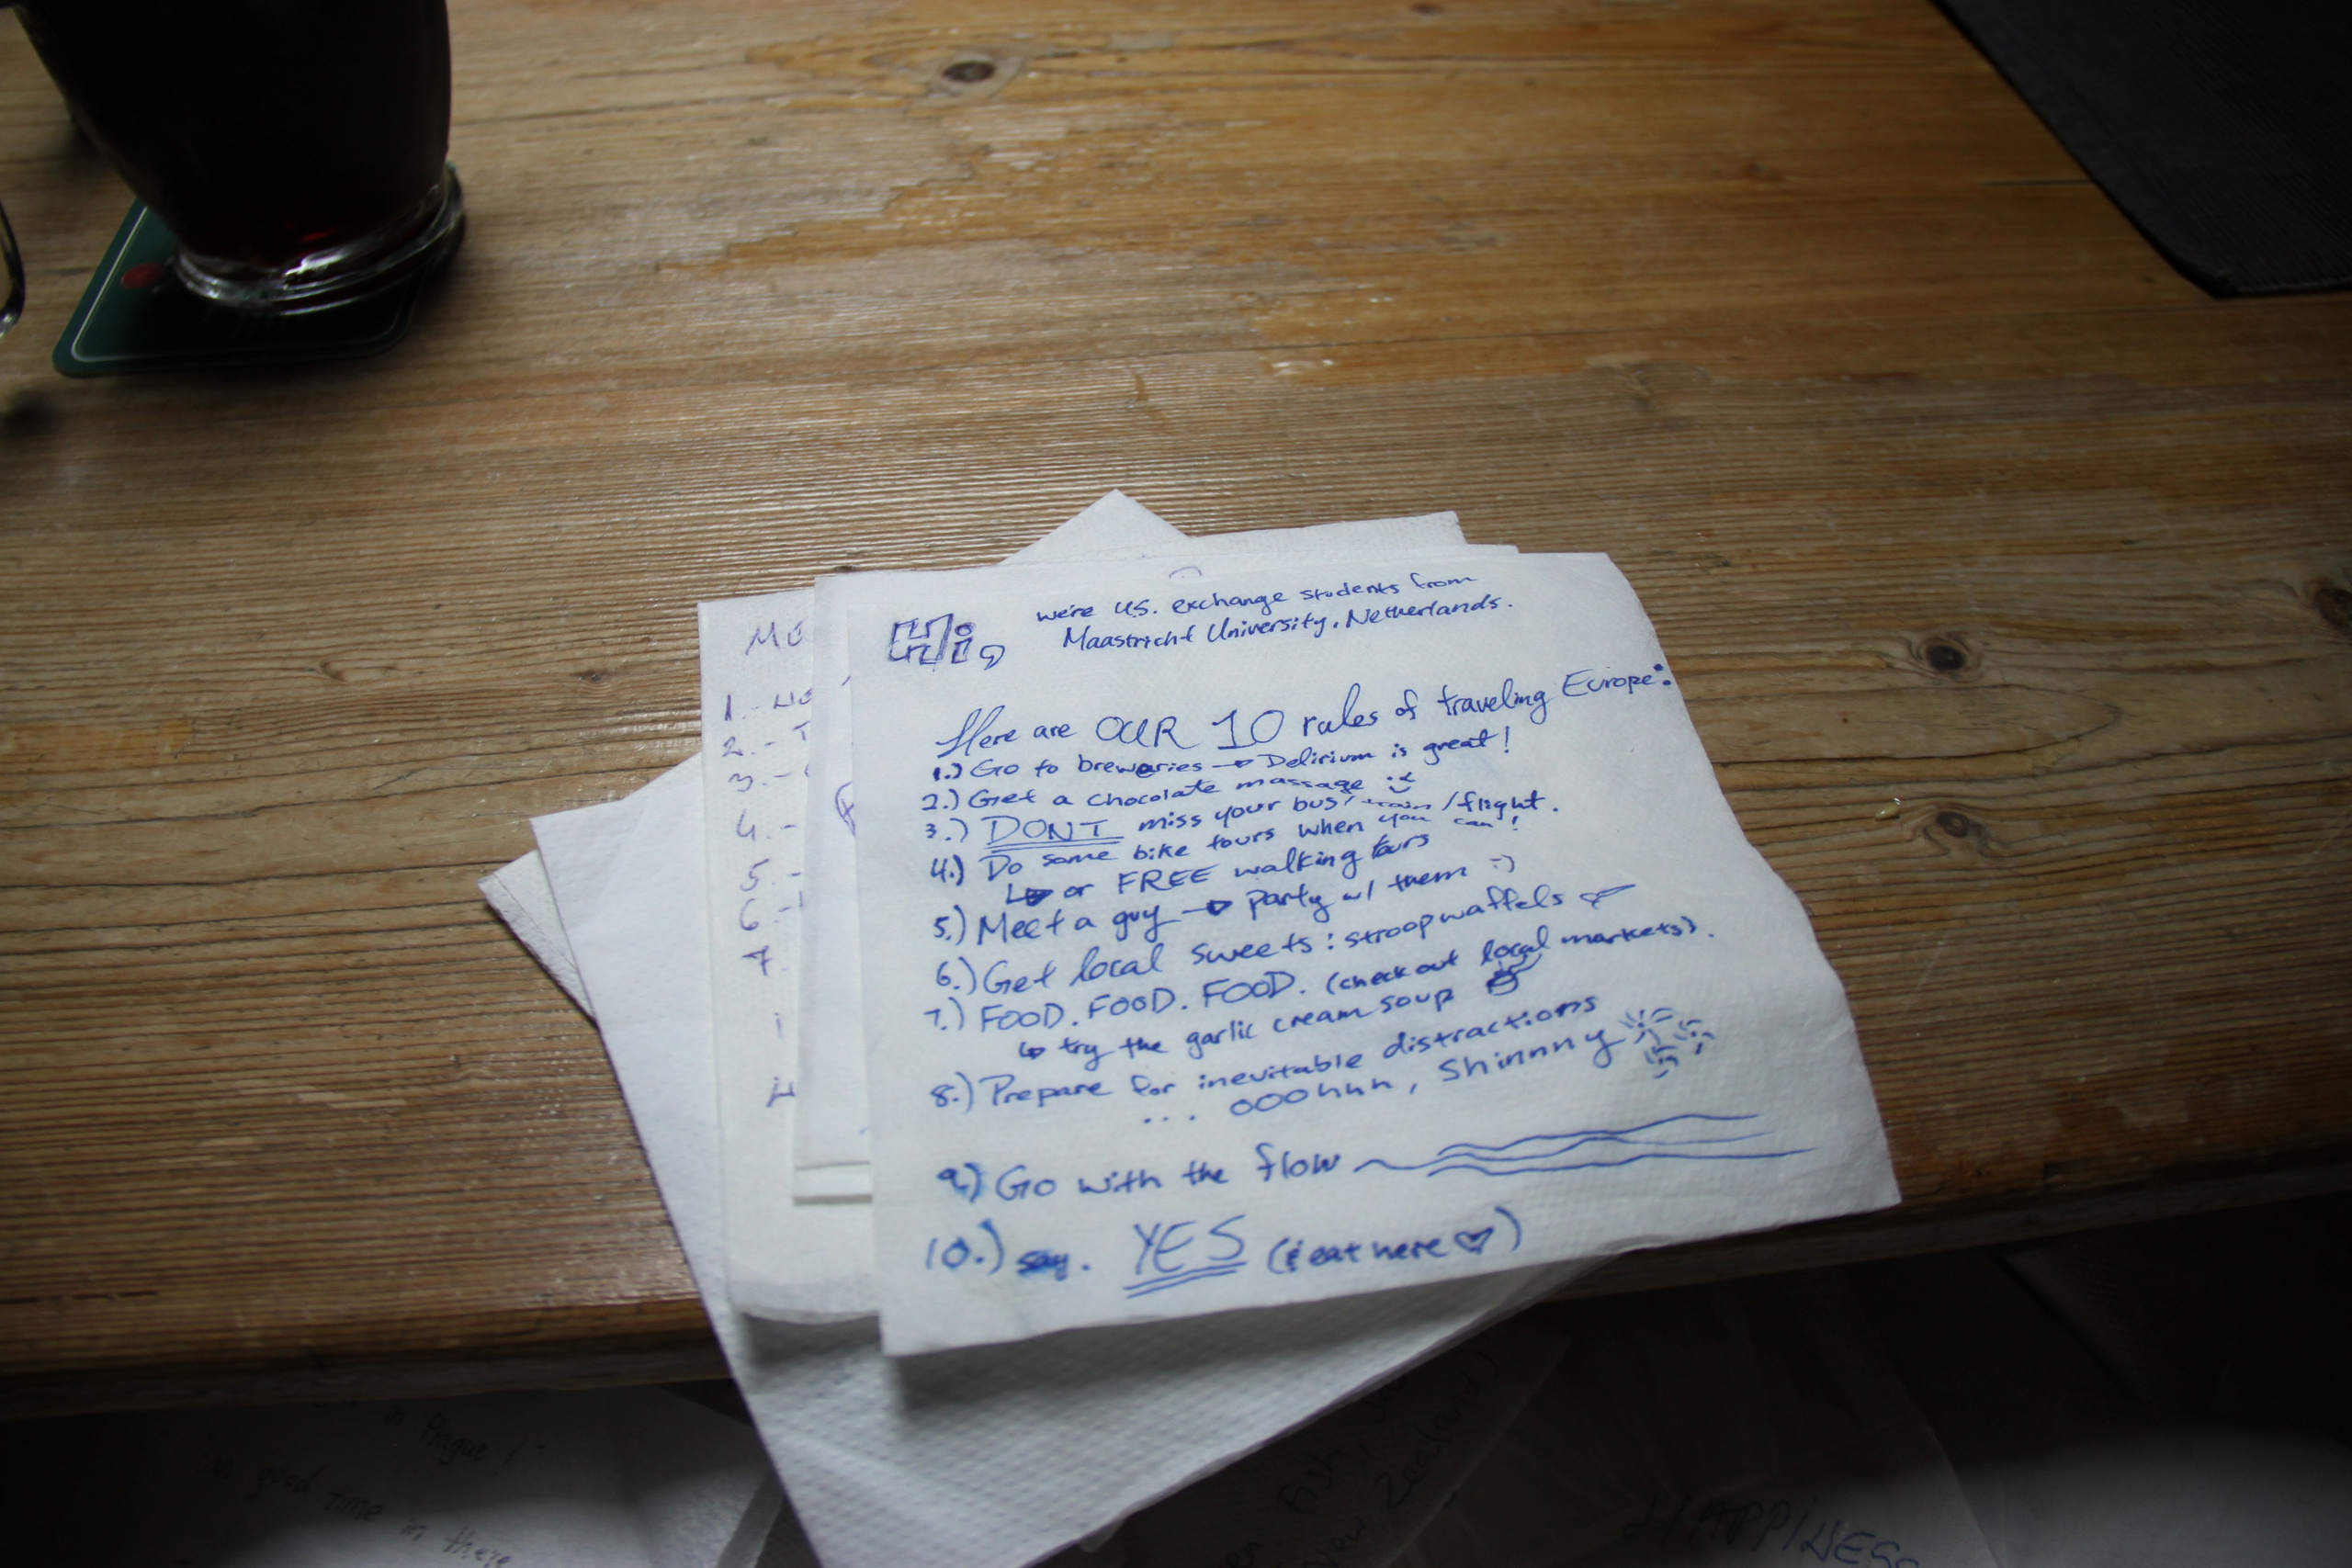 Hi, we're U.S. exchange students from
Maastricht University, Netherlands.
Here are OUR 10 rules of traveling Europe:
1.) Go to breweries → Delirium is great!
2.) Get a chocolate massage :)
3.) DON'T miss your bus/train/flight.
4.) Do some bike tours when you can!
↳ or FREE walking tours
5.) Meet a guy → party w/ them :)
6.) Get local sweets: stroopwaffels
7.) FOOD. FOOD. FOOD. (check out local markets).
↳ try the garlic cream soup
8.) Prepare for inevitable distractions
... ooohhh, Shinnny
9.) Go with the flow
10.) say. YES (& eat here ♡)
MO
1.-
2.- T
3.-
4.-
5.-
6.-
7.
in Prague!
good time in there
Fish,
New Zealand)
HAPPINESS